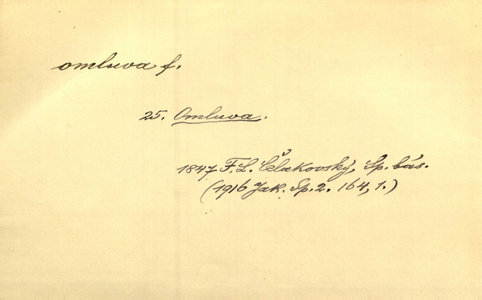 omluva f.
25. Omluva.
1847 F. L. Čelakovský, Sp. bás.
(1916 Jak. Sp. 2. 164, 1.)